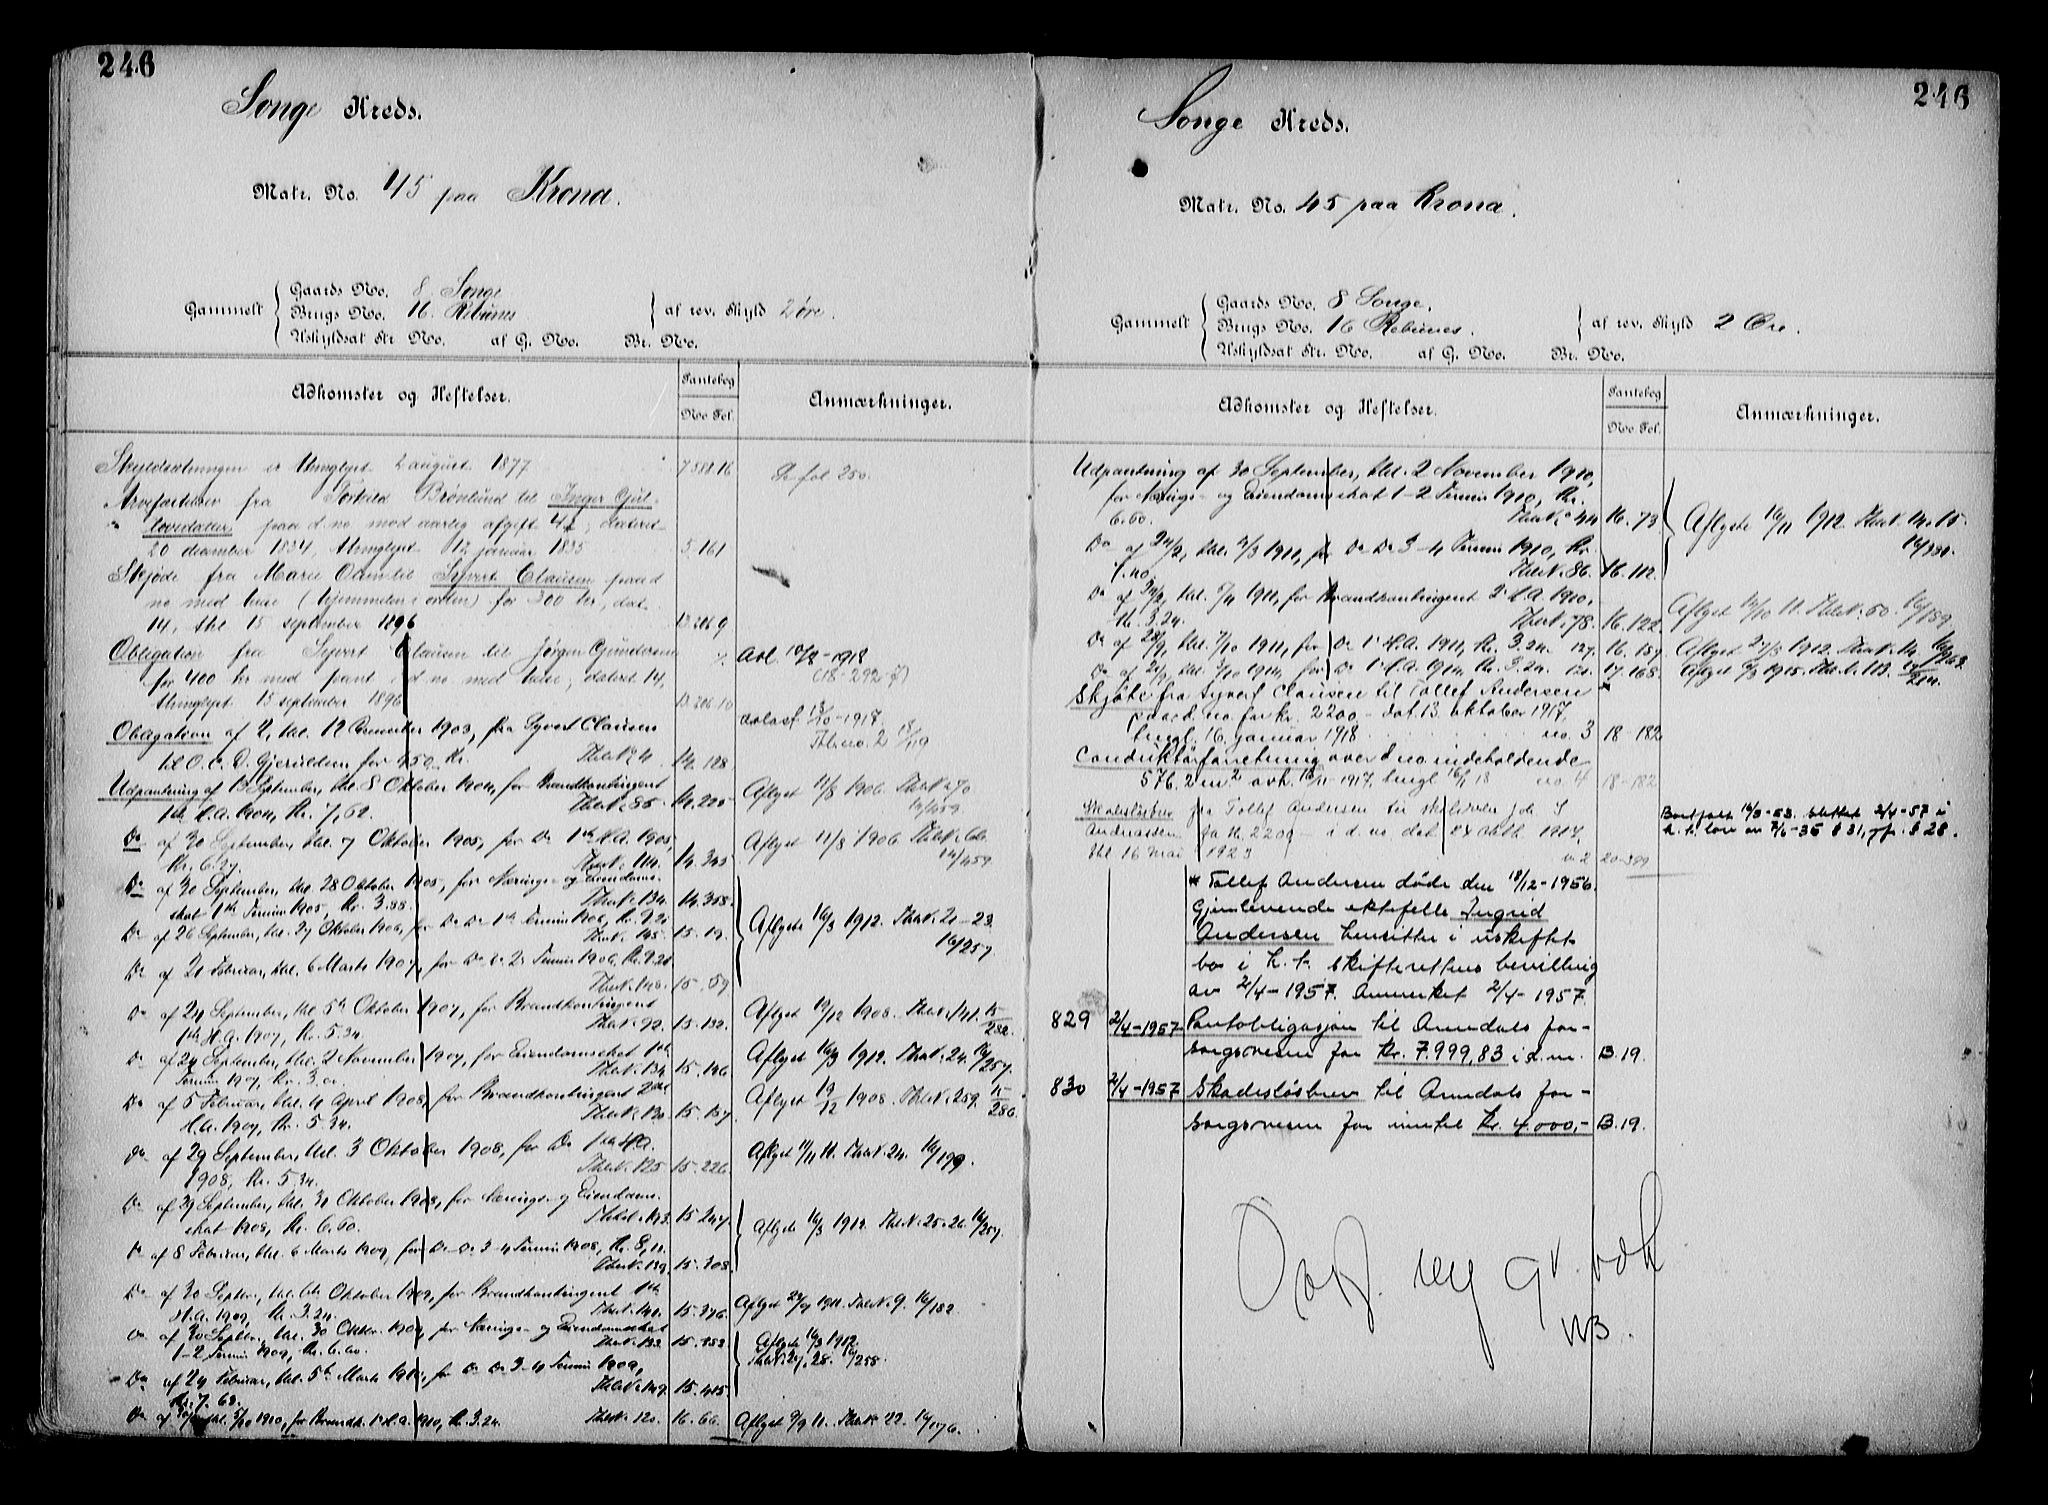 246
Songe Kreds.
Matr. No. 45 paa Krona.
Gammelt
Gaards No. 8 Songe
Brugs No. 16. Rebunes
Uskyldsat Str. No. af G. No. Br. No.
af rev. Skyld 2 øre.
Adkomster og Heftelser.
Pantebog
No Fol.
Anmærkninger.
Skyldsetningen er thinglyst 2 august 1877 7 588.16
Se fol 250.
Arvefæstebrev fra Torkild Brønlund til Inger Gul-
lovsdatter paa d. no mod aarlig afgift dateret
20 december 1834, thinglyst 12 januar 1835 5.161
Skjøde fra Marie Olsen til Syvert Clausen paa d
no med huse (hjemmelen i orden) for 300 kr, dat.
14, thl 15 september 1896 13.206 9
Obligation fra Syvert Clausen til Jørgen Gundersen
for 400 kr med pant i d no med huse, dateret 14,
thinglyst 15 september 1896 13.206 10
avl 10/8-1918
(18-292)
Obligation af 2, thl. 12 December 1903, fra Syvert Clausen
til O. C. D. Gjeruldsen for 450 Kr. 14.128
avlast 1917.
Thl. no. 2
Udpantning af 13 September, thl. 8 Oktober 1904, for Brandkontingent
1ste H.A. 1904, Kr. 7,62. Thl. N. 85 14.225
Aflyst 11/8 1906 Thl. N. 70
14/459
Do af 30 September, thl. 7 Oktober 1905, for Do 1ste H.A. 1905,
Kr. 6.27 Thl. N. 114. 14.345
Aflyst 11/8 1906 Thl. N. 66
14/459
Do af 30 September, thl. 28 Oktober 1905, for Nærings- og Eiendoms-
skat 1ste Termin 1905, Kr. 3.88. Thl. N. 134. 14.358
Do af 26 September, thl. 27 Oktober 1906, for Do Do 1ste Termin 1906,
Thl. N. 145. 15.19.
Aflyste 16/3 1912. Thl. N. 21-23.
16/257.
Do af 21 Februar, thl. 6 Marts 1907, for Do Do 2 Termin 1906,
Thl. N. 140. 15.59
Do af 24 September, thl. 5te Oktober 1907, for Brandkontingent
1ste H.A. 1907, Kr. 5.34. Thl. N. 92. 15.132.
Aflyst 19/12 1908. Thl. N. 141. 15/282.
Do af 24 September, thl. 2 November 1907, for Eiendomsskat 1ste
Termin 1907, Kr. 3.01. Thl. N. 134 15.146
Aflyst 16/3 1912. Thl. N. 24. 16/257.
Do af 5 Februar, thl. 4 April 1908, for Brandkontingent 2den
H.A. 1907, Kr. 5.34. Thl. N. 120. 15.157.
Aflyst 19/12 1908. Thl. N. 259. 15/286.
Do af 29 September, thl. 3 Oktober 1908, for Do 1ste H.A.
1908, Kr. 5.34. Thl. N. 125 15.226
Aflyst 11/11 11. Thl. N. 24. 16/199.
Do af 29 September, thl. 31 Oktober 1908, for Nærings- og Eiendoms-
skat 1908, Kr. 6.60. Thl. N. 193. 15.247
Aflyste 16/3 1912. Thl. N. 25-26. 16/257.
Do af 8 Februar, thl. 6 Marts 1909, for Do Do 3-4 Termin 1908, Kr. 8,11.
Thl. N. 139. 15.308.
Do af 30 Septbr., thl. 6te Oktober 1909, for Brandkontingent 1ste
H.A. 1909, Kr. 3.24. Thl. N. 140. 15.376
Aflyst 1911. Thl. N. 9. 16/182.
Do af 30 Septbr., thl. 30 Oktbr. 1909 for Nærings- og Eiendomsskat
1-2 Termin 1909, Kr. 6.60. Thl. N. 133 15.383
Aflyste 16/3 1912.
Thl. N. 27, 28. 16/258.
Do af 24 Februar, thl. 5te Marts 1910, for Do Do 3-4 Termin 1909,
Kr. 7.63. Thl. N. 149. 15.415.
Do af 30/9, thl. 5/10 1910, for Brandk. 1ste H.A. 1910, Kr. 3.24. Thl. N. 120. 16.66
Aflyst 9/9 11. Thl. N. 22. 16/176.
246
Songe Kreds.
Matr. No. 45 paa Krona.
Gammelt
Gaards No. 8 Songe.
Brugs No. 16 Rebunes.
Uskyldsat Str. No. af G. No. Br. No.
af rev. Skyld 2 Øre.
Adkomster og Heftelser.
Pantebog
No Fol.
Anmærkninger.
Udpantning af 30 September, thl. 2 November 1910,
for Nærings- og Eiendomsskat 1-2 Termin 1910, Kr.
6.60. Thl. N. 44 16.73
Aflyste 16/11 1912 Thl. N. 14-15.
Do af 24/2, thl. 4/3 1911, for Do Do 3-4 Termin 1910, Kr.
7.40. Thl. N. 86. 16.112.
Do af thl. 1911, for Brandkontingent 2 H.A. 1910,
Kr. 3.24. Thl. N. 78. 16.122.
Aflyst 14/10 11. Thl. N. 50. 16/189.
Do af 28/9, thl. 7/10 1911, for Do 1 H.A. 1911, Kr. 3.24 127. 16.157
Aflyst 27/3 1912. Thl. N. 14. 16/263.
Do af thl. 1914, for Do 1 H.A. 1914, Kr. 3.24. 17.168.
Aflyst 1915. Thl. N. 113.
Skjøte fra Syvert Clausen til Tollef Andersen *
paa d. no. for kr. 2200.- dat. 13. oktober 1917,
tingl. 16. januar 1918 no. 3 18-182
Conduktørforretning over d no indeholdende
576.2 m² avh. 1917, tingl 16/1 18 no. 4 18-182
Skadesløsbrev fra Tollef Andersen til skibsreder J.
Andreassen fo kr. 2200 - i d. no dat oktb. 1917,
thl 16 mai 1923 n. 2 20-399
Bortfalt 16/5-53. slettet 2/4-57 i
h. t. lov av 7/6-35 § 31, jfr. § 28.
* Tollef Andersen døde den 18/12-1956.
Gjenlevende ektefelle Ingrid
Andersen hensitter i uskiftet
bo i h. t. skifterettens bevilling
av 2/4-1957. Anmerket 2/4-1957.
829 2/4-1957 Pantobligasjon til Arendals for-
sorgsvesen for kr. 7.999,83 i d. nr. B.19.
830 2/4-1957 Skadesløsbrev til Arendals for-
sorgsvesen for inntil kr. 4.000,- B.19.